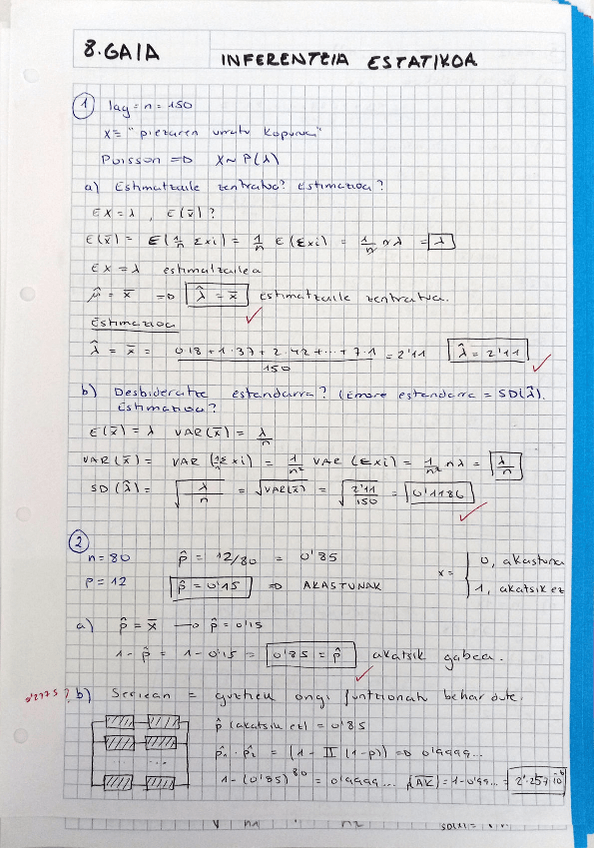 8. GAIA
INFERENTZIA ESTATIKOA
1 lag = n = 150
X = "piezaren urratu kopurua"
Poisson => X ~ P(λ)
a) Estimatzaile zentratua? Estimazioa?
EX = λ , E(x̄)?
E(x̄) = E(1/n Σxi) = 1/n E(Σxi) = 1/n nλ = λ
EX = λ estimatzailea
μ̂ = x̄ => λ̂ = x̄ estimatzaile zentratua.
Estimazioa
λ̂ = x̄ = (0·18 + 1·37 + 2·42 + ... + 7·1)/150 = 2'11 λ̂ = 2'11
b) Desbideratze estandarra? (Errore estandarra = SD(λ̂).
Estimazioa?
E(x̄) = λ VAR(x̄) = λ/n
VAR(x̄) = VAR(1/n Σxi) = 1/n² VAR(Σxi) = 1/n² nλ = λ/n
SD(λ̂) = √(λ/n) = √VAR(x̄) = √(2'11/150) = 0'1186
2
n = 80 p̂ = 12/80 = 0'85 x = { 0, akastuna
p = 12 p̂ = 0'15 => AKASTUNAK 1, akatsik ez
a) p̂ = x̄ → p̂ = 0'15
1 - p̂ = 1 - 0'15 = 0'85 = p̂ akatsik gabea.
0'2775 ? b) Seriean = guztiek ongi funtzionatu behar dute.
p̂ (akatsik ez) = 0'85
p̂₁ · p̂₂ = (1 - Π (1-p)) => 0'9999...
1 - (0'85)⁸⁰ = 0'9999... p(AK) = 1 - 0'99... = 2'257·10⁻⁶